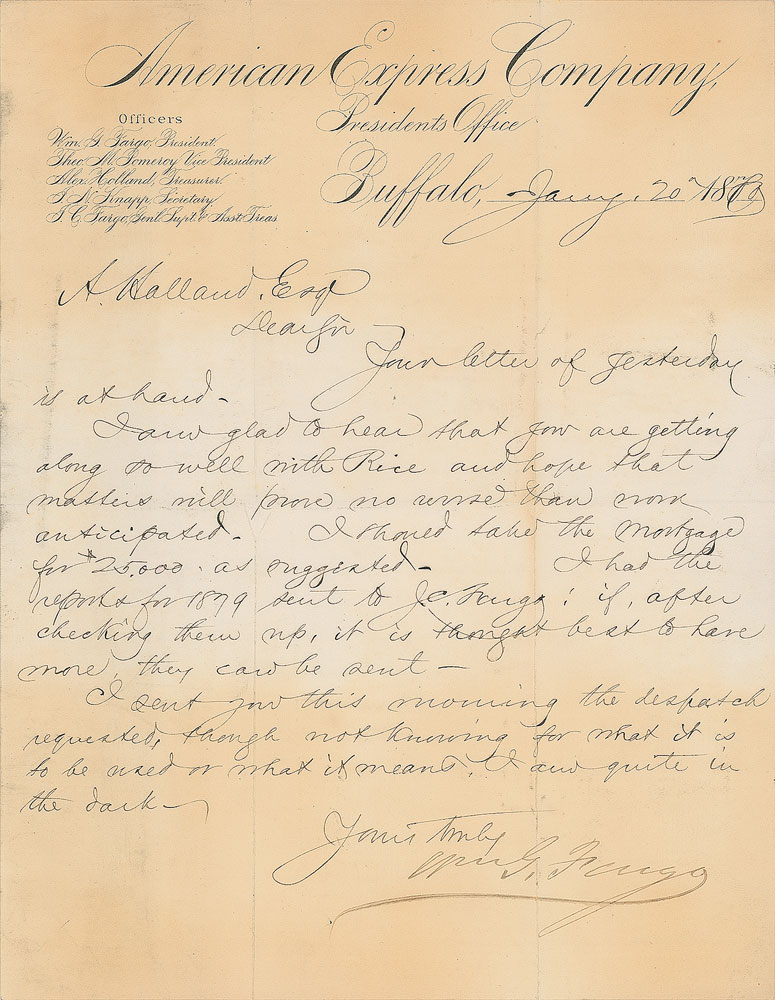 American Express Company,
Presidents Office
Officers
Wm. G. Fargo, President.
Theo. M. Pomeroy Vice President
Alex. Holland, Treasurer.
J. N. Knapp, Secretary
J. C. Fargo, Genl. Supt. & Asst. Treas
Buffalo, Jany. 20" 1880
A. Holland, Esq
Dear Sir
Your letter of yesterday
is at hand -
I am glad to hear that you are getting
along so well with Rice and hope that
matters will prove no worse than now
anticipated - I should take the mortgage
for $25,000. as suggested - I had the
reports for 1879 sent to J.C. Fargo; if, after
checking them up, it is thought best to have
more, they can be sent -
I sent you this morning the despatch
requested, though not knowing for what it is
to be used or what it means, I am quite in
the dark -
Yours truly
Wm G. Fargo